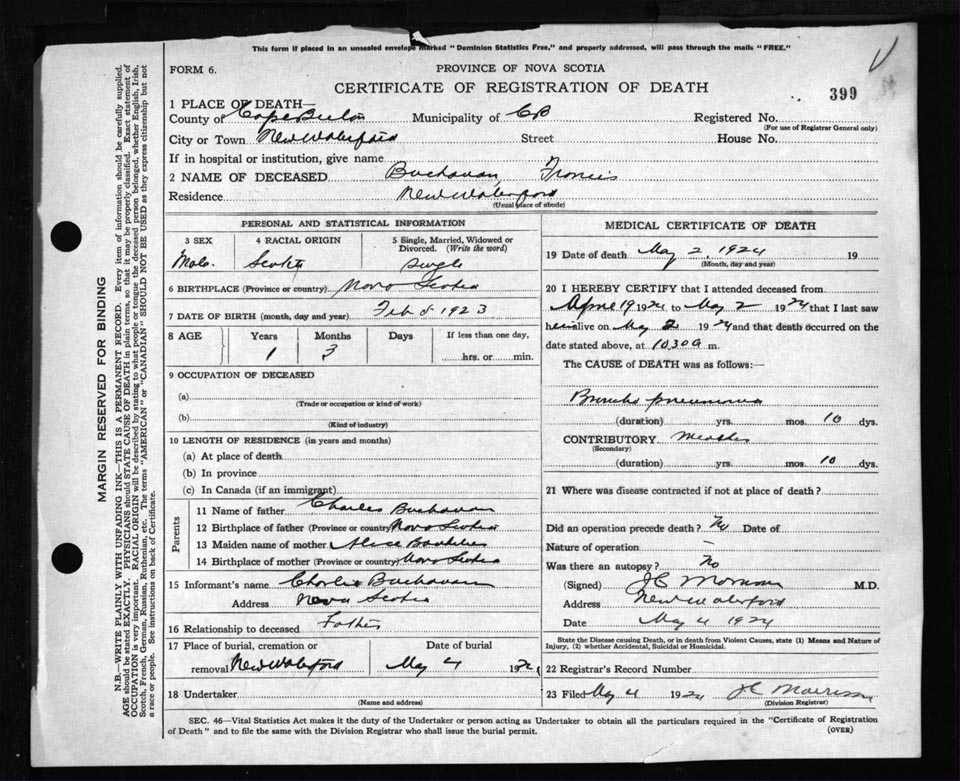 This form if placed in an unsealed envelope marked "Dominion Statistics Free," and properly addressed, will pass through the mails "FREE."
FORM 6.
PROVINCE OF NOVA SCOTIA
CERTIFICATE OF REGISTRATION OF DEATH
399
1 PLACE OF DEATH—
County of Cape Breton Municipality of CB Registered No.
(For use of Registrar General only)
City or Town New Waterford Street House No.
If in hospital or institution, give name
2 NAME OF DECEASED Buchanan, Francis
Residence New Waterford
(Usual place of abode)
PERSONAL AND STATISTICAL INFORMATION
3 SEX 4 RACIAL ORIGIN 5 Single, Married, Widowed or Divorced. (Write the word)
Male. Scotch Single
6 BIRTHPLACE (Province or country) Nova Scotia
7 DATE OF BIRTH (month, day and year) Feb 5 1923
8 AGE Years Months Days If less than one day,
1 3 hrs. or min.
9 OCCUPATION OF DECEASED
(a)
(Trade or occupation or kind of work)
(b)
(Kind of industry)
10 LENGTH OF RESIDENCE (in years and months)
(a) At place of death
(b) In province
(c) In Canada (if an immigrant)
Parents
11 Name of father Charles Buchanan
12 Birthplace of father (Province or country) Nova Scotia
13 Maiden name of mother Alice
14 Birthplace of mother (Province or Country) Nova Scotia
15 Informant's name Charlie Buchanan
Address Nova Scotia
16 Relationship to deceased Father
17 Place of burial, cremation or removal New Waterford
Date of burial
May 4 1924
18 Undertaker
(Name and address)
MEDICAL CERTIFICATE OF DEATH
19 Date of death May 2, 1924 19
(Month, day and year)
20 I HEREBY CERTIFY that I attended deceased from
April 19 1924 to May 2 1924 that I last saw
him alive on May 2 1924 and that death occurred on the
date stated above, at 10.30 a m.
The CAUSE of DEATH was as follows:—
Broncho pneumonia
(duration) yrs. mos. 10 dys.
CONTRIBUTORY Measles
(Secondary)
(duration) yrs. mos. 10 dys.
21 Where was disease contracted if not at place of death?
Did an operation precede death? No Date of
Nature of operation —
Was there an autopsy? No
(Signed) JC Morrison M.D.
Address New Waterford
Date May 4 1924
State the Disease causing Death, or in death from Violent Causes, state (1) Means and Nature of
Injury, (2) whether Accidental, Suicidal or Homicidal.
22 Registrar's Record Number
23 Filed May 4 1924 JC Morrison
(Division Registrar)
SEC. 46—Vital Statistics Act makes it the duty of the Undertaker or person acting as Undertaker to obtain all the particulars required in the "Certificate of Registration
of Death" and to file the same with the Division Registrar who shall issue the burial permit.
(OVER)
MARGIN RESERVED FOR BINDING
N.B.—WRITE PLAINLY, WITH UNFADING INK—THIS IS A PERMANENT RECORD. Every item of information should be carefully supplied.
AGE should be stated EXACTLY. PHYSICIANS should STATE CAUSE OF DEATH in plain terms, so that it may be properly classified. Exact statement of
OCCUPATION is very important. RACIAL ORIGIN will be described by stating to what people or tongue the deceased person belonged, whether English, Irish,
Scotch, French, German, Russian, Ruthenian, etc. The terms "AMERICAN" or "CANADIAN" SHOULD NOT BE USED as they express citizenship but not
a race or people. See instructions on back of Certificate.